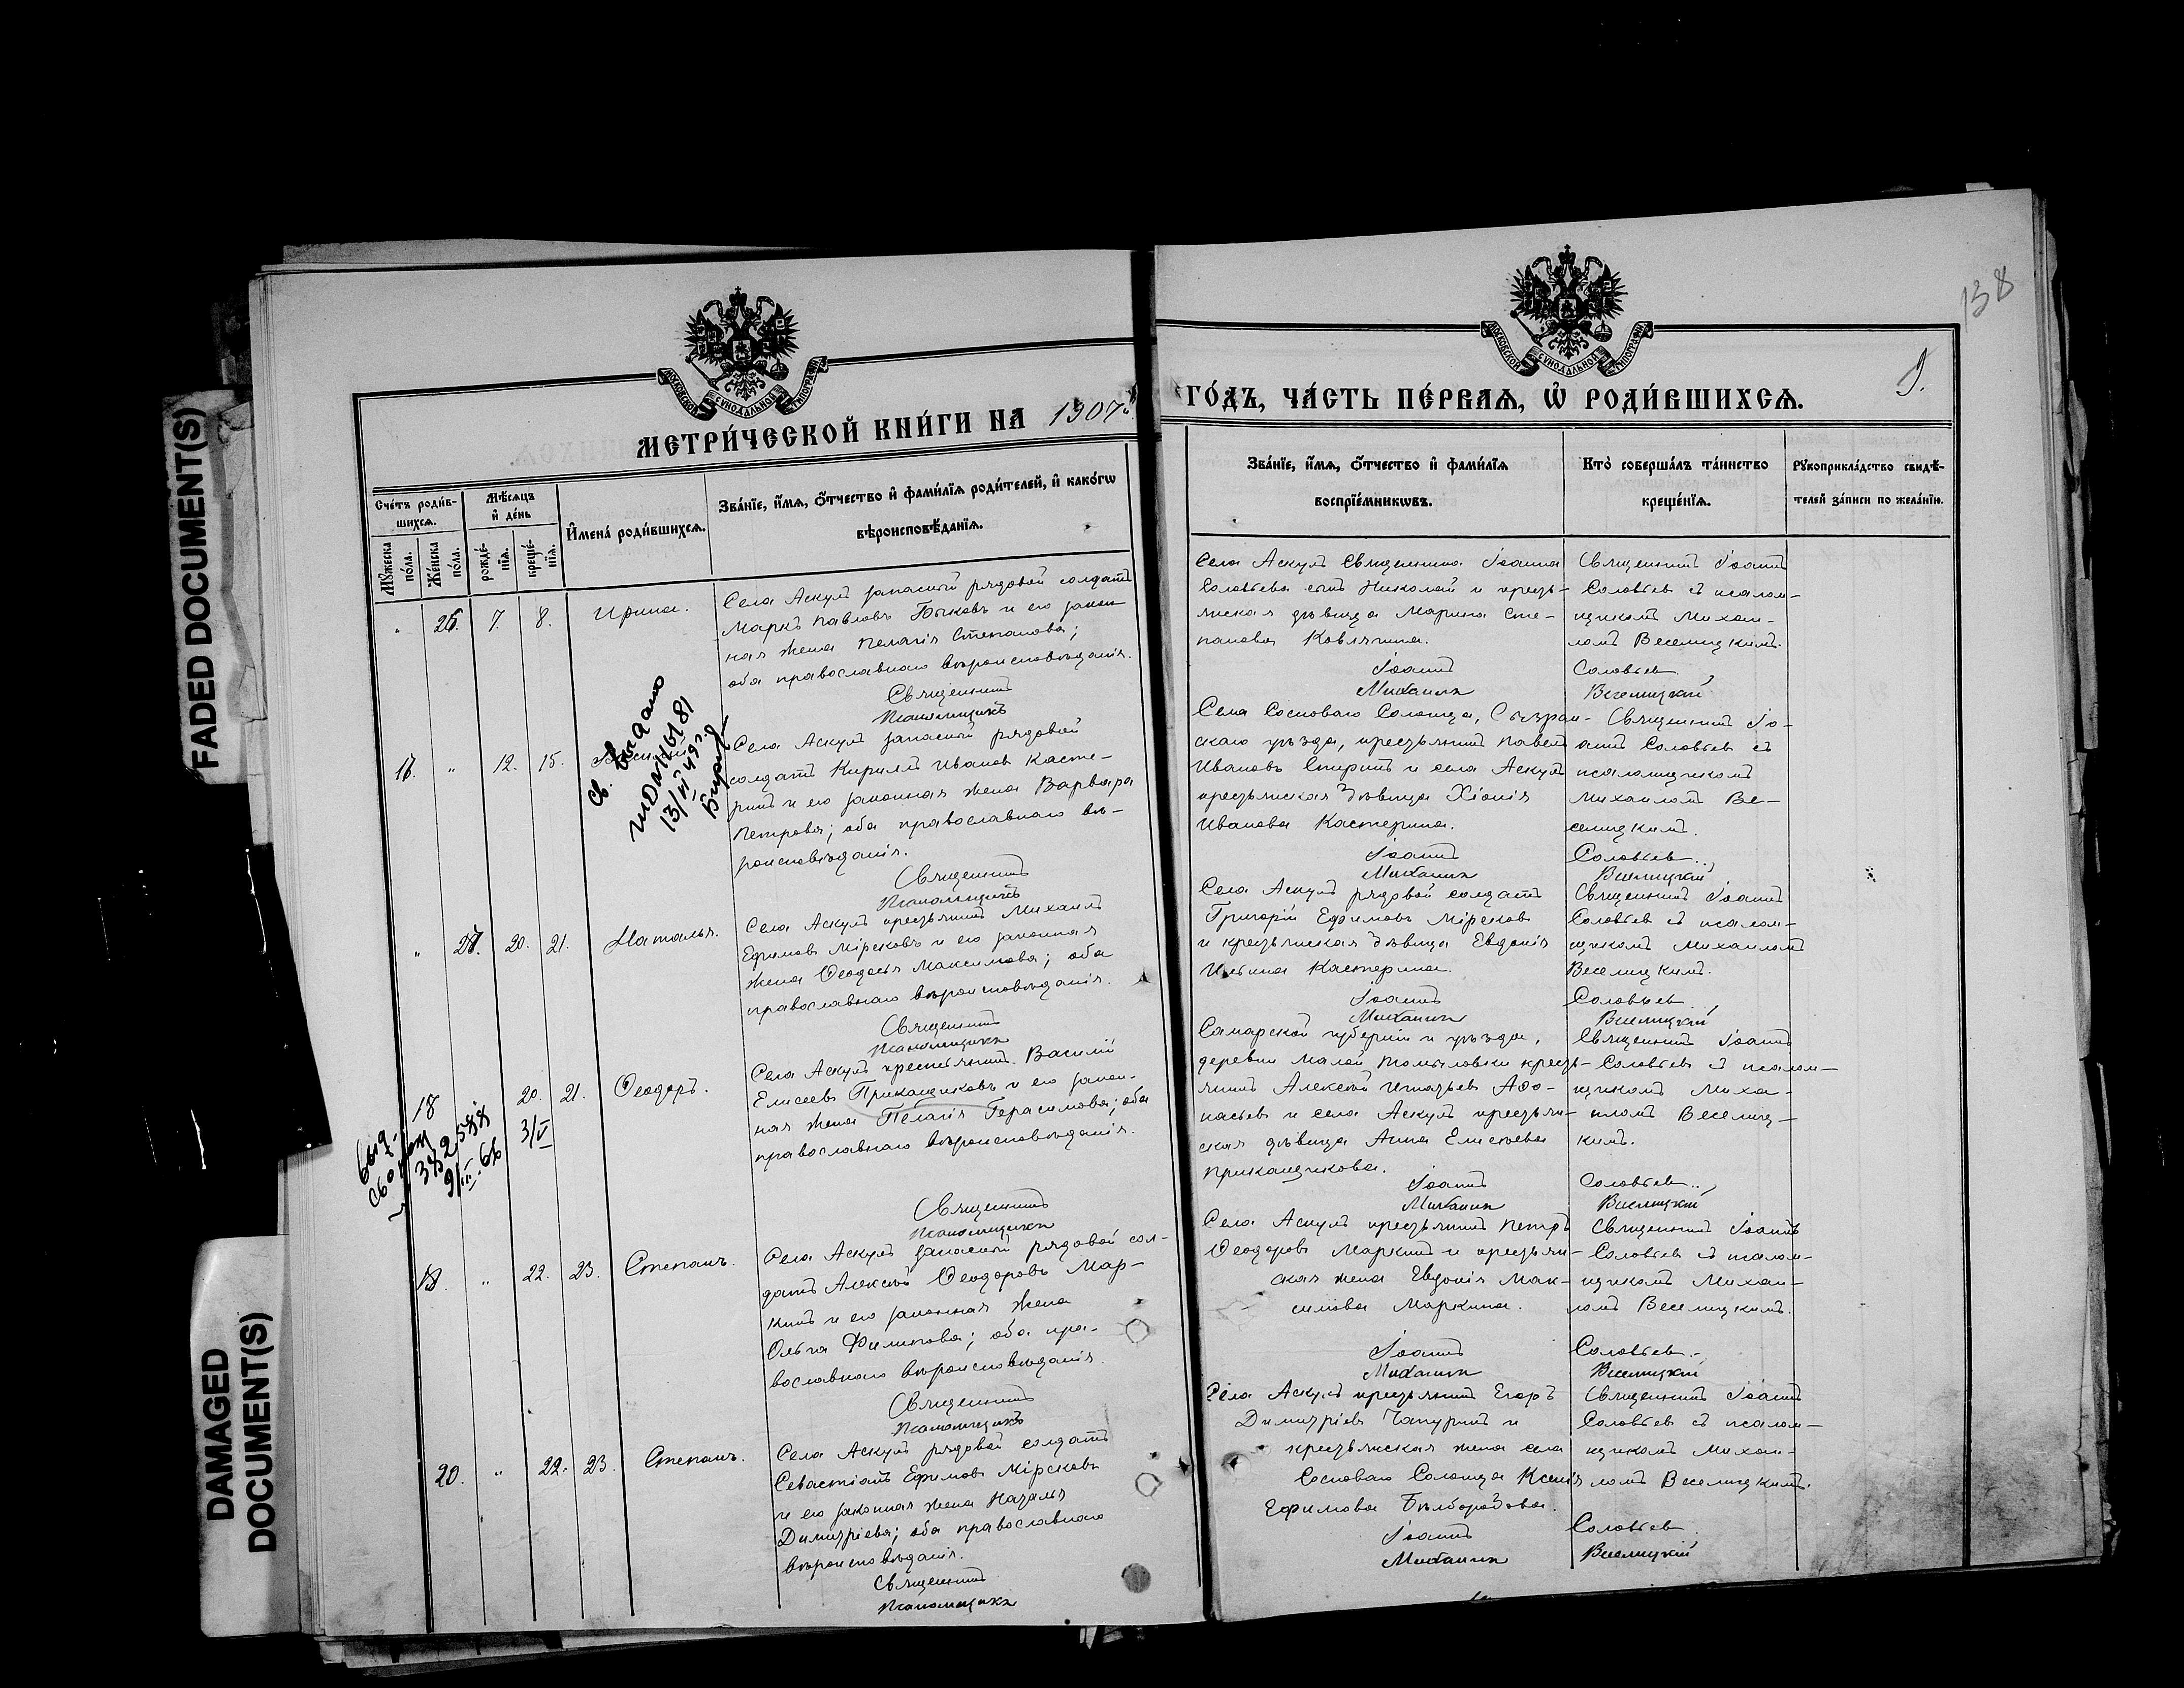 FADED DOCUMENT(S)
DAMAGED
DOCUMENT(S)
138
МОСКОВСКОЙ СѴНОДАЛЬНОЙ ТИПОГРАФІИ
МОСКОВСКОЙ СѴНОДАЛЬНОЙ ТИПОГРАФІИ
МЕТРИ́ЧЕСКОЙ КНИ́ГИ НА 1907й
ГО́ДЪ, ЧА́СТЬ ПЕ́РВАѦ, Ѡ҆ РОДИ́ВШИХСѦ.
9.
Сче́тъ роди́в-
шихсѧ.
Мꙋ́жеска
по́ла.
Же́нска
по́ла.
Мѣ́сѧцъ
и҆ де́нь
рожде́-
нїѧ.
креще́-
нїѧ.
И҆мена̀ роди́вшихсѧ.
Зва́нїе, и҆́мѧ, ѻ҆́тчество и҆ фами́лїѧ роди́телей, и҆ како́гѡ
вѣроисповѣ́данїѧ.
Зва́нїе, и҆́мѧ, ѻ҆́тчество и҆ фами́лїѧ
воспрїе́мникѡвъ.
Кто̀ соверша́лъ та́инство
креще́нїѧ.
Рꙋкоприкла́дство свидѣ́-
телей за́писи по жела́нїю.
" 26. 7. 8. Ирина.
Села Аскулъ запасной рядовой солдатъ
Маркъ Павловъ Быковъ и его закон
ная жена Пелагія Степанова;
оба православнаго вѣроисповѣданія.
Священникъ
Псаломщикъ
Села Аскулъ Священника Іоанна
Соловьева сынъ Николай и кресть-
янская дѣвица Марина Сте-
панова Ковлягина.
Іоаннъ
Михаилъ
Священникъ Іоаннъ
Соловьев съ псалом-
щикомъ Михаи-
ломъ Веселицкимъ.
Соловьев
Веселицкій
17. " 12. 15.
св. выдано
13/VI 49 г.
Села Аскулъ запасной рядовой
солдатъ Кириллъ Иванов Касте-
ринъ и его законная жена Варвара
Петрова; оба православнаго вѣ-
роисповѣданія.
Священникъ
Псаломщикъ
Села Сосноваго Солонца, Сызран-
скаго уѣзда, крестьянинъ Павелъ
Ивановъ Спиринъ и села Аскулъ
крестьянская дѣвица Хіонія
Иванова Кастерина.
Іоаннъ
Михаилъ
Священникъ Іо-
аннъ Соловьев съ
псаломщикомъ
Михаиломъ Ве-
селицкимъ.
Соловьев
Веселицкій
" 27. 20. 21. Наталья.
Села Аскулъ крестьянинъ Михаилъ
Ефимовъ Мірсковъ и его законная
жена Ѳеодосья Максимова; оба
православнаго вѣроисповѣданія.
Священникъ
Псаломщикъ
Села Аскулъ рядовой солдатъ
Григорій Ефимовъ Мірсков
и крестьянская дѣвица Евдокія
Ильина Кастерина.
Іоаннъ
Михаилъ
Священникъ Іоаннъ
Соловьев съ псалом-
щикомъ Михаиломъ
Веселицкимъ.
Соловьев
Веселицкій
18 20. 21. Ѳеодоръ.
3/V
9/III-66
Села Аскулъ крестьянинъ Василій
Елисеевъ Приказщиковъ и его закон-
ная жена Пелагія Герасимова; оба
православнаго вѣроисповѣданія.
Священникъ
Псаломщикъ
Самарской губерніи и уѣзда,
деревни Малой Томыловки кресть-
янинъ Алексѣй Игнатьев Афо-
насьев и села Аскулъ крестьян-
ская дѣвица Анна Елисѣева
Приказщикова.
Іоаннъ
Михаилъ
Священникъ Іоаннъ
Соловьев съ псалом-
щикомъ Миха-
иломъ Веселиц-
кимъ.
Соловьев
Веселицкій
19. " 22. 23. Степанъ.
Села Аскулъ запасной рядовой сол-
датъ Алексѣй Ѳеодоровъ Мар-
кинъ и его законная жена
Ольга Филипова; оба пра-
вославнаго вѣроисповѣданія.
Священникъ
Псаломщикъ
Села Аскулъ крестьянинъ Петръ
Ѳеодоровъ Маркинъ и крестьян-
ская жена Евдокія Мак-
симова Маркина.
Іоаннъ
Михаилъ
Священникъ Іоаннъ
Соловьев съ псалом-
щикомъ Михаи-
ломъ Веселицкимъ.
Соловьев
Веселицкій
20. " 22. 23. Степанъ.
Села Аскулъ рядовой солдатъ
Севастіанъ Ефимов Мірсковъ
и его законная жена Наталья
Димитріева; оба православнаго
вѣроисповѣданія.
Священникъ
Псаломщикъ
Села Аскулъ крестьянинъ Егоръ
Димитріев Чапуринъ и
крестьянская жена села
Сосноваго Солонца Ксенія
Ефимова Бѣлобородова.
Іоаннъ
Михаилъ
Священникъ Іоаннъ
Соловьев съ псалом-
щикомъ Михаи-
ломъ Веселицкимъ.
Соловьев
Веселицкій